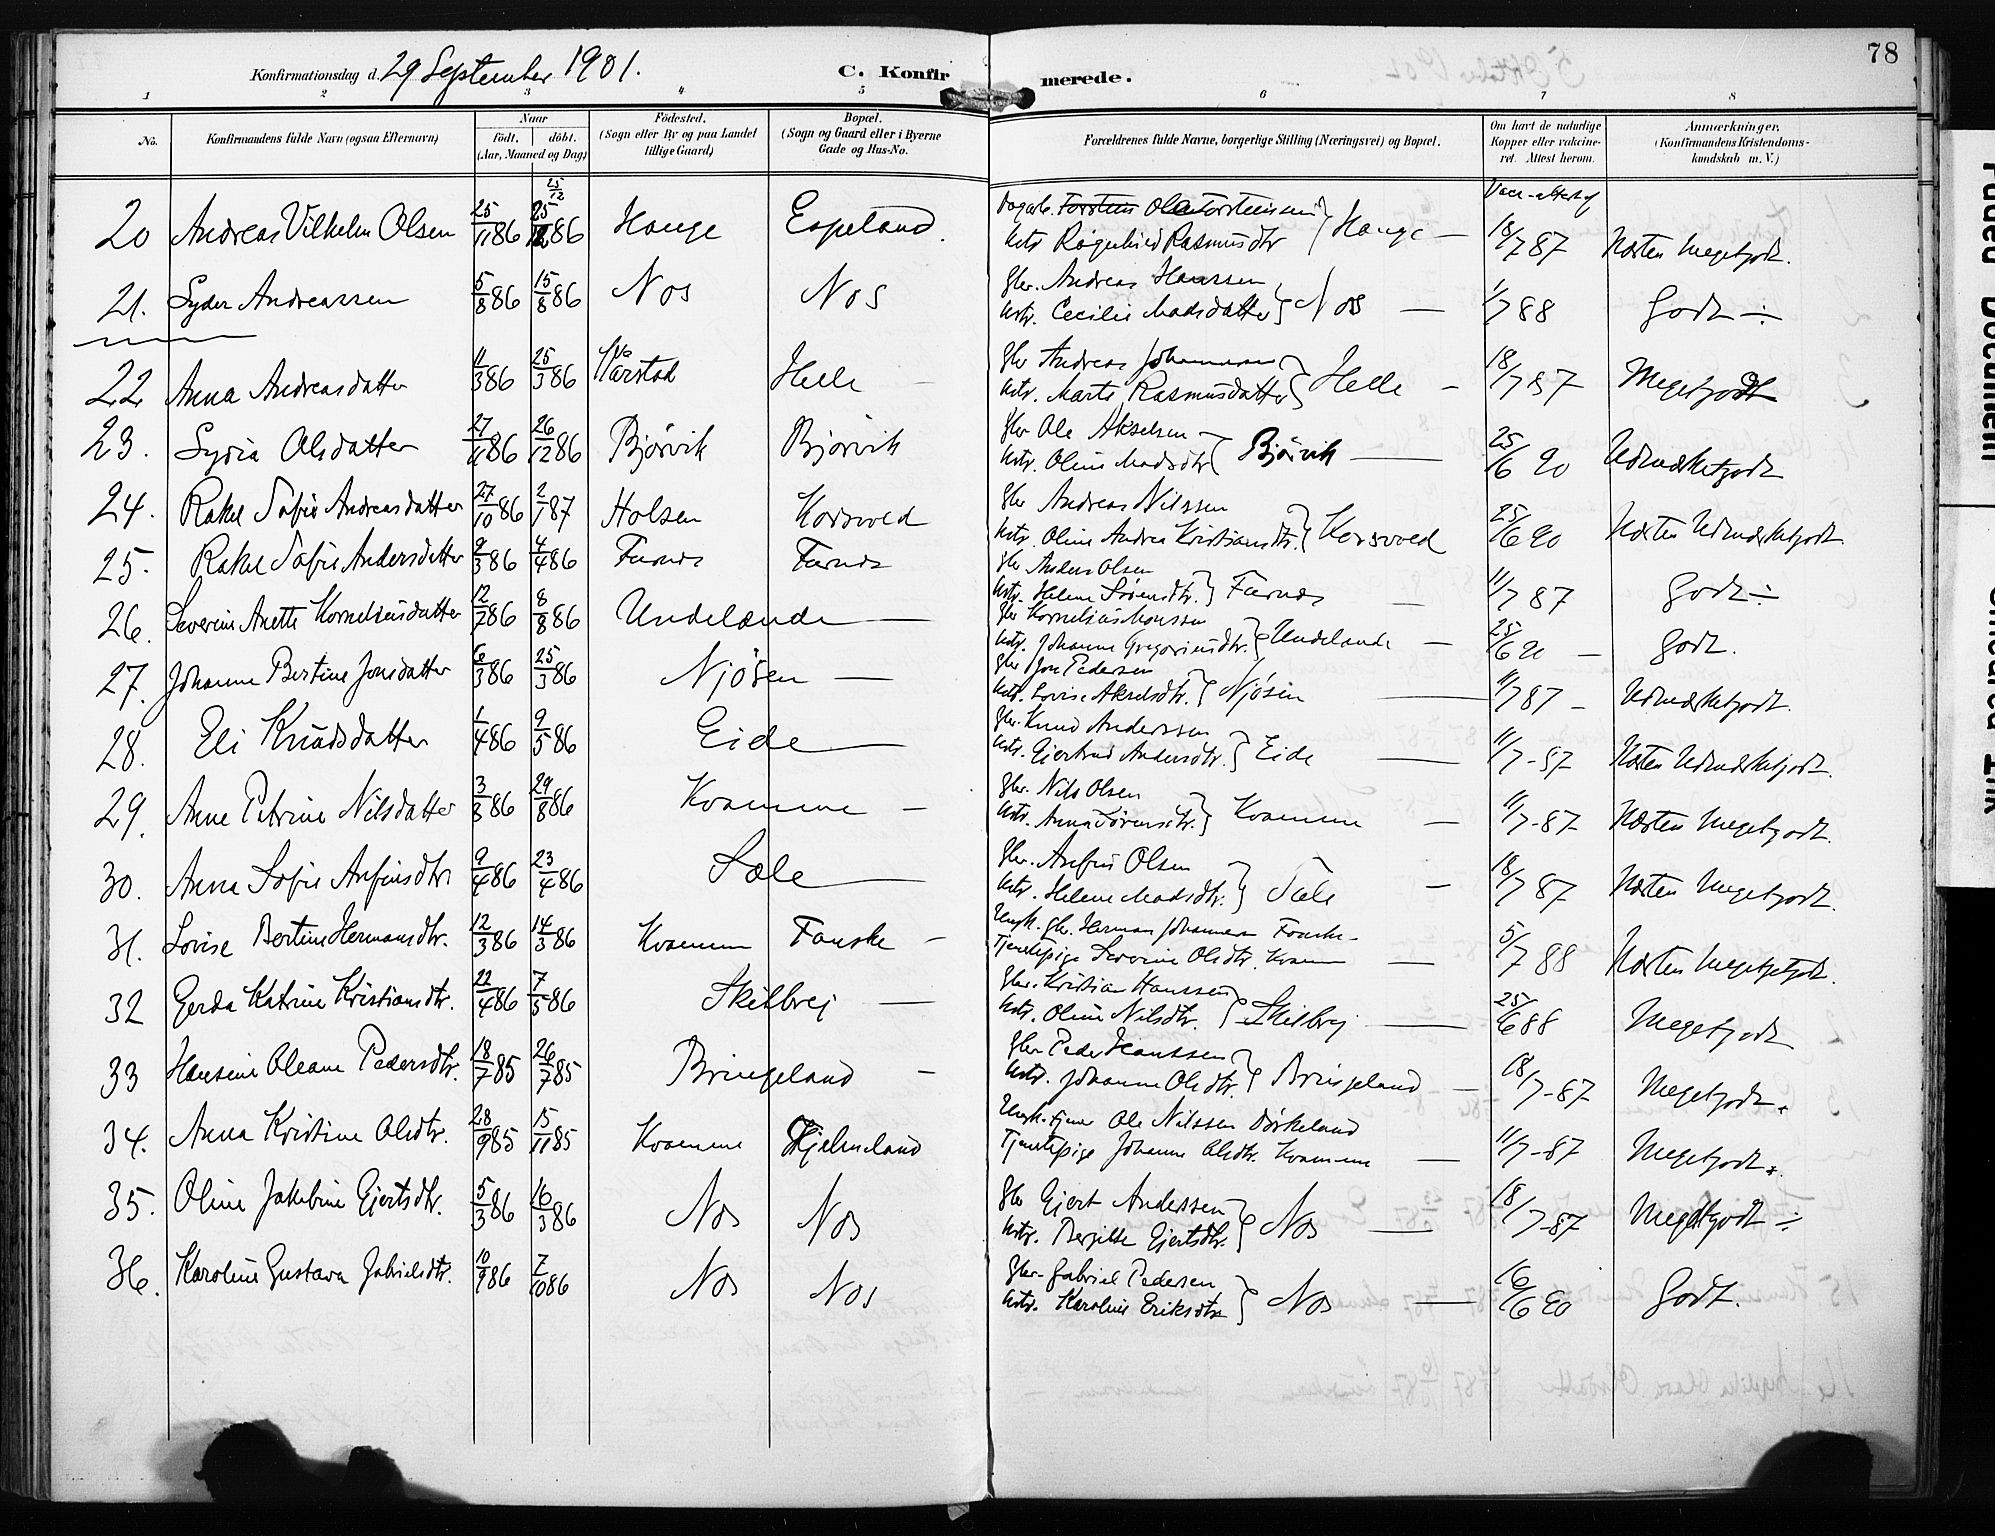 Konfirmationsdag d. 29 September 1901. C. Konfirmerede. 78
1 2 3 4 5 6 7 8
No. Konfirmandens fulde Navn (ogsaa Efternavn) Naar født. døbt. (Aar, Maaned og Dag) Fødested. (Sogn eller By og paa Landet tillige Gaard) Bopæl. (Sogn og Gaard eller i Byerne Gade og Hus-No.
Forældrenes fulde Navne, borgerlige Stilling (Næringsvei) og Bopæl. Om havt de naturlige Kopper eller vaccineret. Attest herom. Anmærkninger. (Konfirmandens Kristendomskundskab m. V.)
20 Andreas Vilhelm Olsen 25/11 86 25/12 86 Hauge Espeland.
Ragnhild Rasmusdtr } Hauge — 18/7 87 Næsten Megetgodt.
21. Andreassen 5/8 86 15/8 86 Nos Nos
Gbr. Andreas Hanssen
Hstr. Cecilie Madsdatter } Nos — 1/7 88 Godt ÷
22 Anna Andreasdatter 11/3 86 25/3 86 Harstad Helle
Gbr Andreas Johannessen
Hstr. Marte Rasmusdatter } Helle - 18/7 87 Megetgodt
23. Lydia Olsdatter 27/11 86 26/12 86 Bjørvik Bjørvik
Gbr Ole Akselsen
Hstr. Oline Madsdtr { Bjørvik — 25/6 90 Udmærketgodt
24. Rakel Sofie Andreasdatter 27/10 86 2/1 87 Holsen Korsvold
Gbr Andreas Nilssen
Hstr. Oline Andrea Kristiansdtr. } Korsvold 25/6 90 Næsten Udmærketgodt.
25. Rakel Sofie Andersdatter 2/3 86 4/4 86 Farnes Farnes
Gbr Anders Olsen
Hstr. Helene Sørensdtr. } Farnes — 11/7 87 Godt ÷
26. Severine Anette Korneliusdatter 12/7 86 8/8 86 Undelande —
Gbr Kornelius Monssen
Hstr. Johanne Gregoriusdtr. } Undelande — 25/6 90 — Godt.
27. Johanne Bertine Jonsdatter 6/3 86 25/3 86 Njøsen —
Gbr Jon Pedersen
Hstr. Lovise Akselsdtr. } Njøsen — 11/7 87 - Udmærketgodt.
28. Eli Knudsdatter 1/4 86 9/5 86 Eide —
Gbr. Knud Anderssen
Hstr. Gjertrud Andersdtr. } Eide — 11/7 - 87 Næsten Udmærketgodt.
29. Anne Petrine Nilsdatter 3/8 86 29/8 86 Kvamme —
Gbr. Nils Olsen
Hstr. Anna Sørensdtr. } Kvamme — 11/7 - 87 Næsten Megetgodt.
30. Anna Sofie Anfinsdtr 9/4 86 23/4 86 Sæle —
Gbr. Anfin Olsen
Hstr. Helene Madsdtr. } Sæle — 18/7 87 Næsten Megetgodt.
31. Lovise Bertine Hermansdtr. 12/3 86 14/3 86 Kvamme Fauske -
Ungk. gbr. Herman Johannessen Fauske.
Tjenestepige Severine Olsdtr. Kvamme — 5/7 88 Næsten Megetgodt.
32 Gerda Katrine Kristiansdtr. 22/4 86 7/5 86 Skilbrej —
Gbr. Kristian Hanssen
Hstr. Oline Nilsdtr. } Skilbrej — 25/6 88 Megetgodt
33 Hansine Oleane Pedersdtr. 18/7 85 26/7 85 Bringeland —
Gbr. Peder Hanssen
Hstr. Johanne Olsdtr. } Bringeland — 18/7 - 87 Megetgodt.
34. Anna Kristine Olsdtr. 28/9 85 15/11 85 Kvamme Hjelmeland
Ungk. tjener Ole Nilssen Birkeland
Tjenestepige Johanne Olsdtr. Kvamme — 11/7 - 87 Megetgodt.
35. Oline Jakobine Gjertsdtr. 5/3 86 16/3 86 Nos Nos
Gbr Gjert Anderssen
Hstr. Bergitte Gjertsdtr. } Nos — 18/7 - 87 Megetgodt ÷
36. Karoline Gustava Gabrielsdtr. 10/9 86 7/10 86 Nos Nos
Gbr. Gabriel Pedersen
Hstr. Karoline Eriksdtr } Nos — 16/6 90 Godt.
Faded Document
Smeared Ink